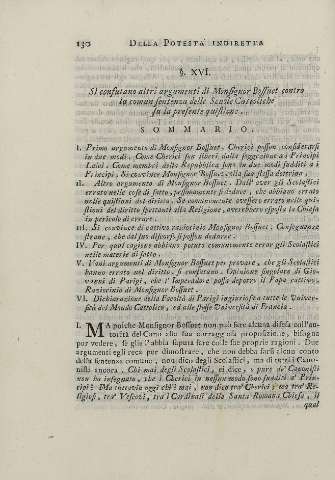 130 DELLA POTESTA' INDIRETTA
§. XVI.
Si confutano altri argumenti di Monsignor Bossuet contro
la comun sentenza delle Scuole Cattoliche
su la presente quistione.
SOMMARIO.
I. Primo argumento di Monsignor Bossuet. Cherici posson considerarsi
in due modi. Come Cherici son liberi dalla soggezione a' Principi
Laici. Come membri della Repubblica sono in due modi sudditi a i
Principi. Si convince Monsignor Bossuet colla sua stessa dottrina.
II. Altro argumento di Monsignor Bossuet. Dall' aver gli Scolastici
errato nelle cose di fatto, pessimamente deduce, che abbiano errato
nelle quistioni del diritto. Se comunemente avessero errato nelle qui-
stioni del diritto spettanti alla Religione, avrebbero esposta la Chiesa
in pericolo di errare.
III. Si convince di cattivo raziocinio Monsignor Bossuet. Conseguenze
strane, che dal suo discorso si posson dedurre.
IV. Per qual cagione abbiano potuto comunemente errar gli Scolastici
nelle materie di fatto.
V. Vani argumenti di Monsignor Bossuet per provare, che gli Scolastici
hanno errato nel diritto, si confutano. Opinione singolare di Gio-
vanni di Parigi, che l' Imperadore possa deporre il Papa cattivo.
Raziocinio di Monsignor Bossuet.
VI. Dichiarazione della Facoltà di Parigi ingiuriosa a tutte le Univer-
sità del Mondo Cattolico, ed alle stesse Università di Francia.
I. MA poiche Monsignor Bossuet non può fare alcuna difesa coll'au-
torità del Cano alla sua contraria proposizione, bisogna
pur vedere, se gli l'abbia saputa fare colle sue proprie ragioni. Due
argumenti egli reca per dimostrare, che non debba farsi alcun conto
della sentenza comune, non dico degli Scolastici, ma di tutti i Cano-
nisti ancora. Chi mai degli Scolastici, ei dice, o pure de' Canonisti
non ha insegnato, che i Cherici in nessun modo sono sudditi a' Prin-
cipi? Ma tuttavia oggi chi è mai, non dico tra' Cherici; ma tra' Re-
ligiosi, tra' Vescovi, tra i Cardinali della Santa Romana Chiesa, il
quale